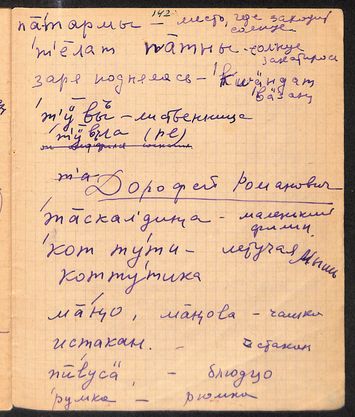 142
па́тармы – место, где заходит солнце
т'е́лат па́тны – солнце закатилось
заря поднялась – к и'äндат вäзаң
т'ӱвъ – лиственница
т'ӱвла (пе)
т'а
Дорофей Романович
та́скал'диңа – маленький филин
кот ту́ти – летучая мышь
коттутика
ма́ңо, маңова – чашка
истакан. – стакан
пӣвусӓ, – блюдцо
румка – рюмка